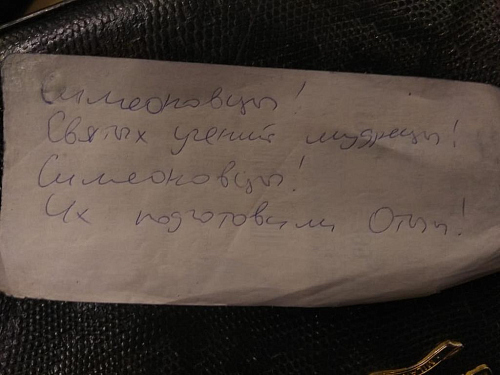 Симеоновцы!
Святых учений мудрецы!
Симеоновцы!
Их подготовили Отцы!